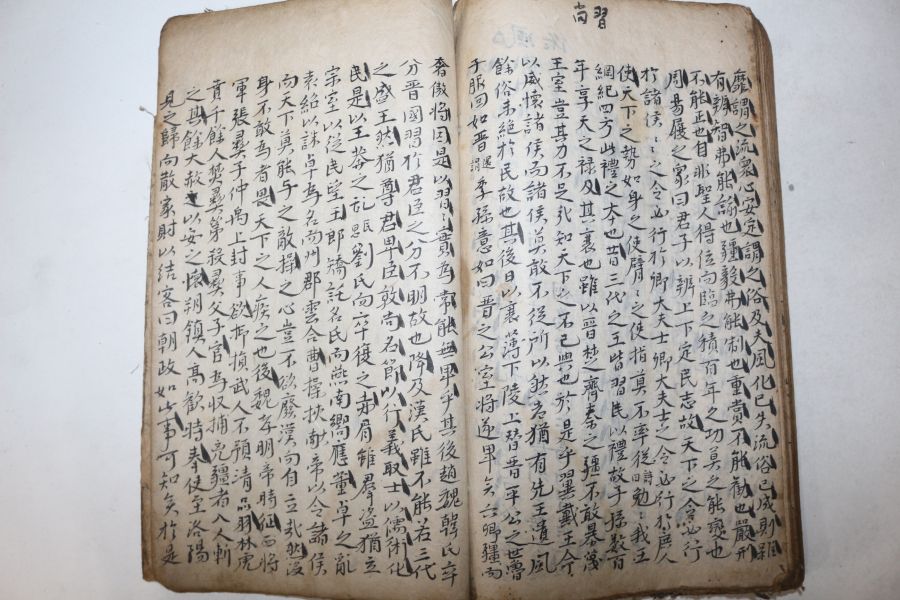 習尚
靡謂之流衆心安定謂之俗及夫風化已失流俗已成則雖
有辨智弗能諭也疆毅弗能制也重賞不能勸也嚴刑
不能正也自非聖人得位而臨之積百年之功莫之能變也
周易履之象曰君子以辨上下定民志故天下之令必行
於諸侯〻之令必行於卿大夫士卿大夫士之令必行於庶人
使天下之勢如身之使臂〻之使指莫不率從詩曰勉〻我王
綱紀四方此禮之本也昔三代之王皆習民以禮故子孫數百
年享天之祿及其衰也雖以晉楚齊秦之疆不敢暴蔑
王室豈其力不足哉知天下之不已與也於是乎翼戴王命
以威懷諸侯而諸侯莫敢不從所以然者猶有先王遺風
餘俗未絶於民故也其後日以衰薄下陵上替晉平公之世魯
子服回如晉還謂季孫意如曰晉之公室將遂卑矣六卿疆而
奢傲將因是以習〻實為常能無卑乎其後趙魏韓氏卒
分晉國習於君臣之分不明故也降及漢氏雖不能若三代
之盛王然猶尊君卑臣敦尚名節以行義取士以儒術化
民是以王莽之亂民思劉氏而卒復之赤眉雖羣盜猶立
宗室以從民望王郎矯託名氏而燕南嚮應董卓之亂
袁紹以誅卓為名而州郡雲合曹操挾獻帝以令諸侯
而天下莫能與之敵操之心豈不欲廢漢而自立哉然沒
身不敢為者畏天下之人疾之也後魏孝明帝時征西將
軍張彝子仲瑀上封事欲抑損武人不預清品羽林虎
賁千餘人焚彝第殺彝父子官為收捕兇疆者八人斬
之其餘大赦以安之懷朔鎮人高歡時奉使至洛陽
見之歸而散家財以結客曰朝政如此事可知矣於是